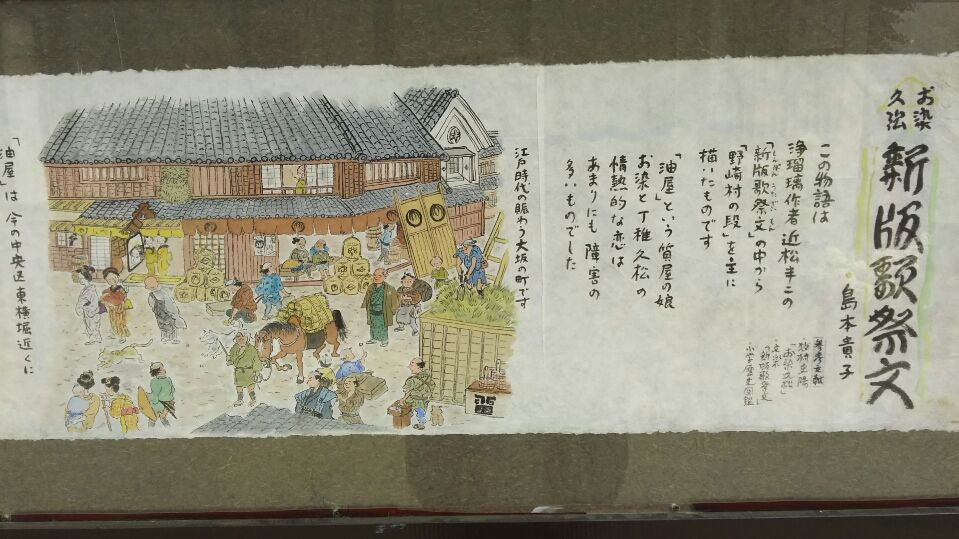 お染
久松
新版歌祭文
島本貴子
この物語は
浄瑠璃作者近松半二の
「新版歌祭文」の中から
しんぱんうたざいもん
「野崎村の段」を主に
描いたものです
参考文献
「お染久松」
文楽
「新版歌祭文」
小学歴史図鑑
「油屋」という質屋の娘
お染と丁稚久松の
情熱的な恋は
あまりにも障害の
多いものでした
江戸時代の賑わう大坂の町です
「油屋」は今の中央区東横堀近くに